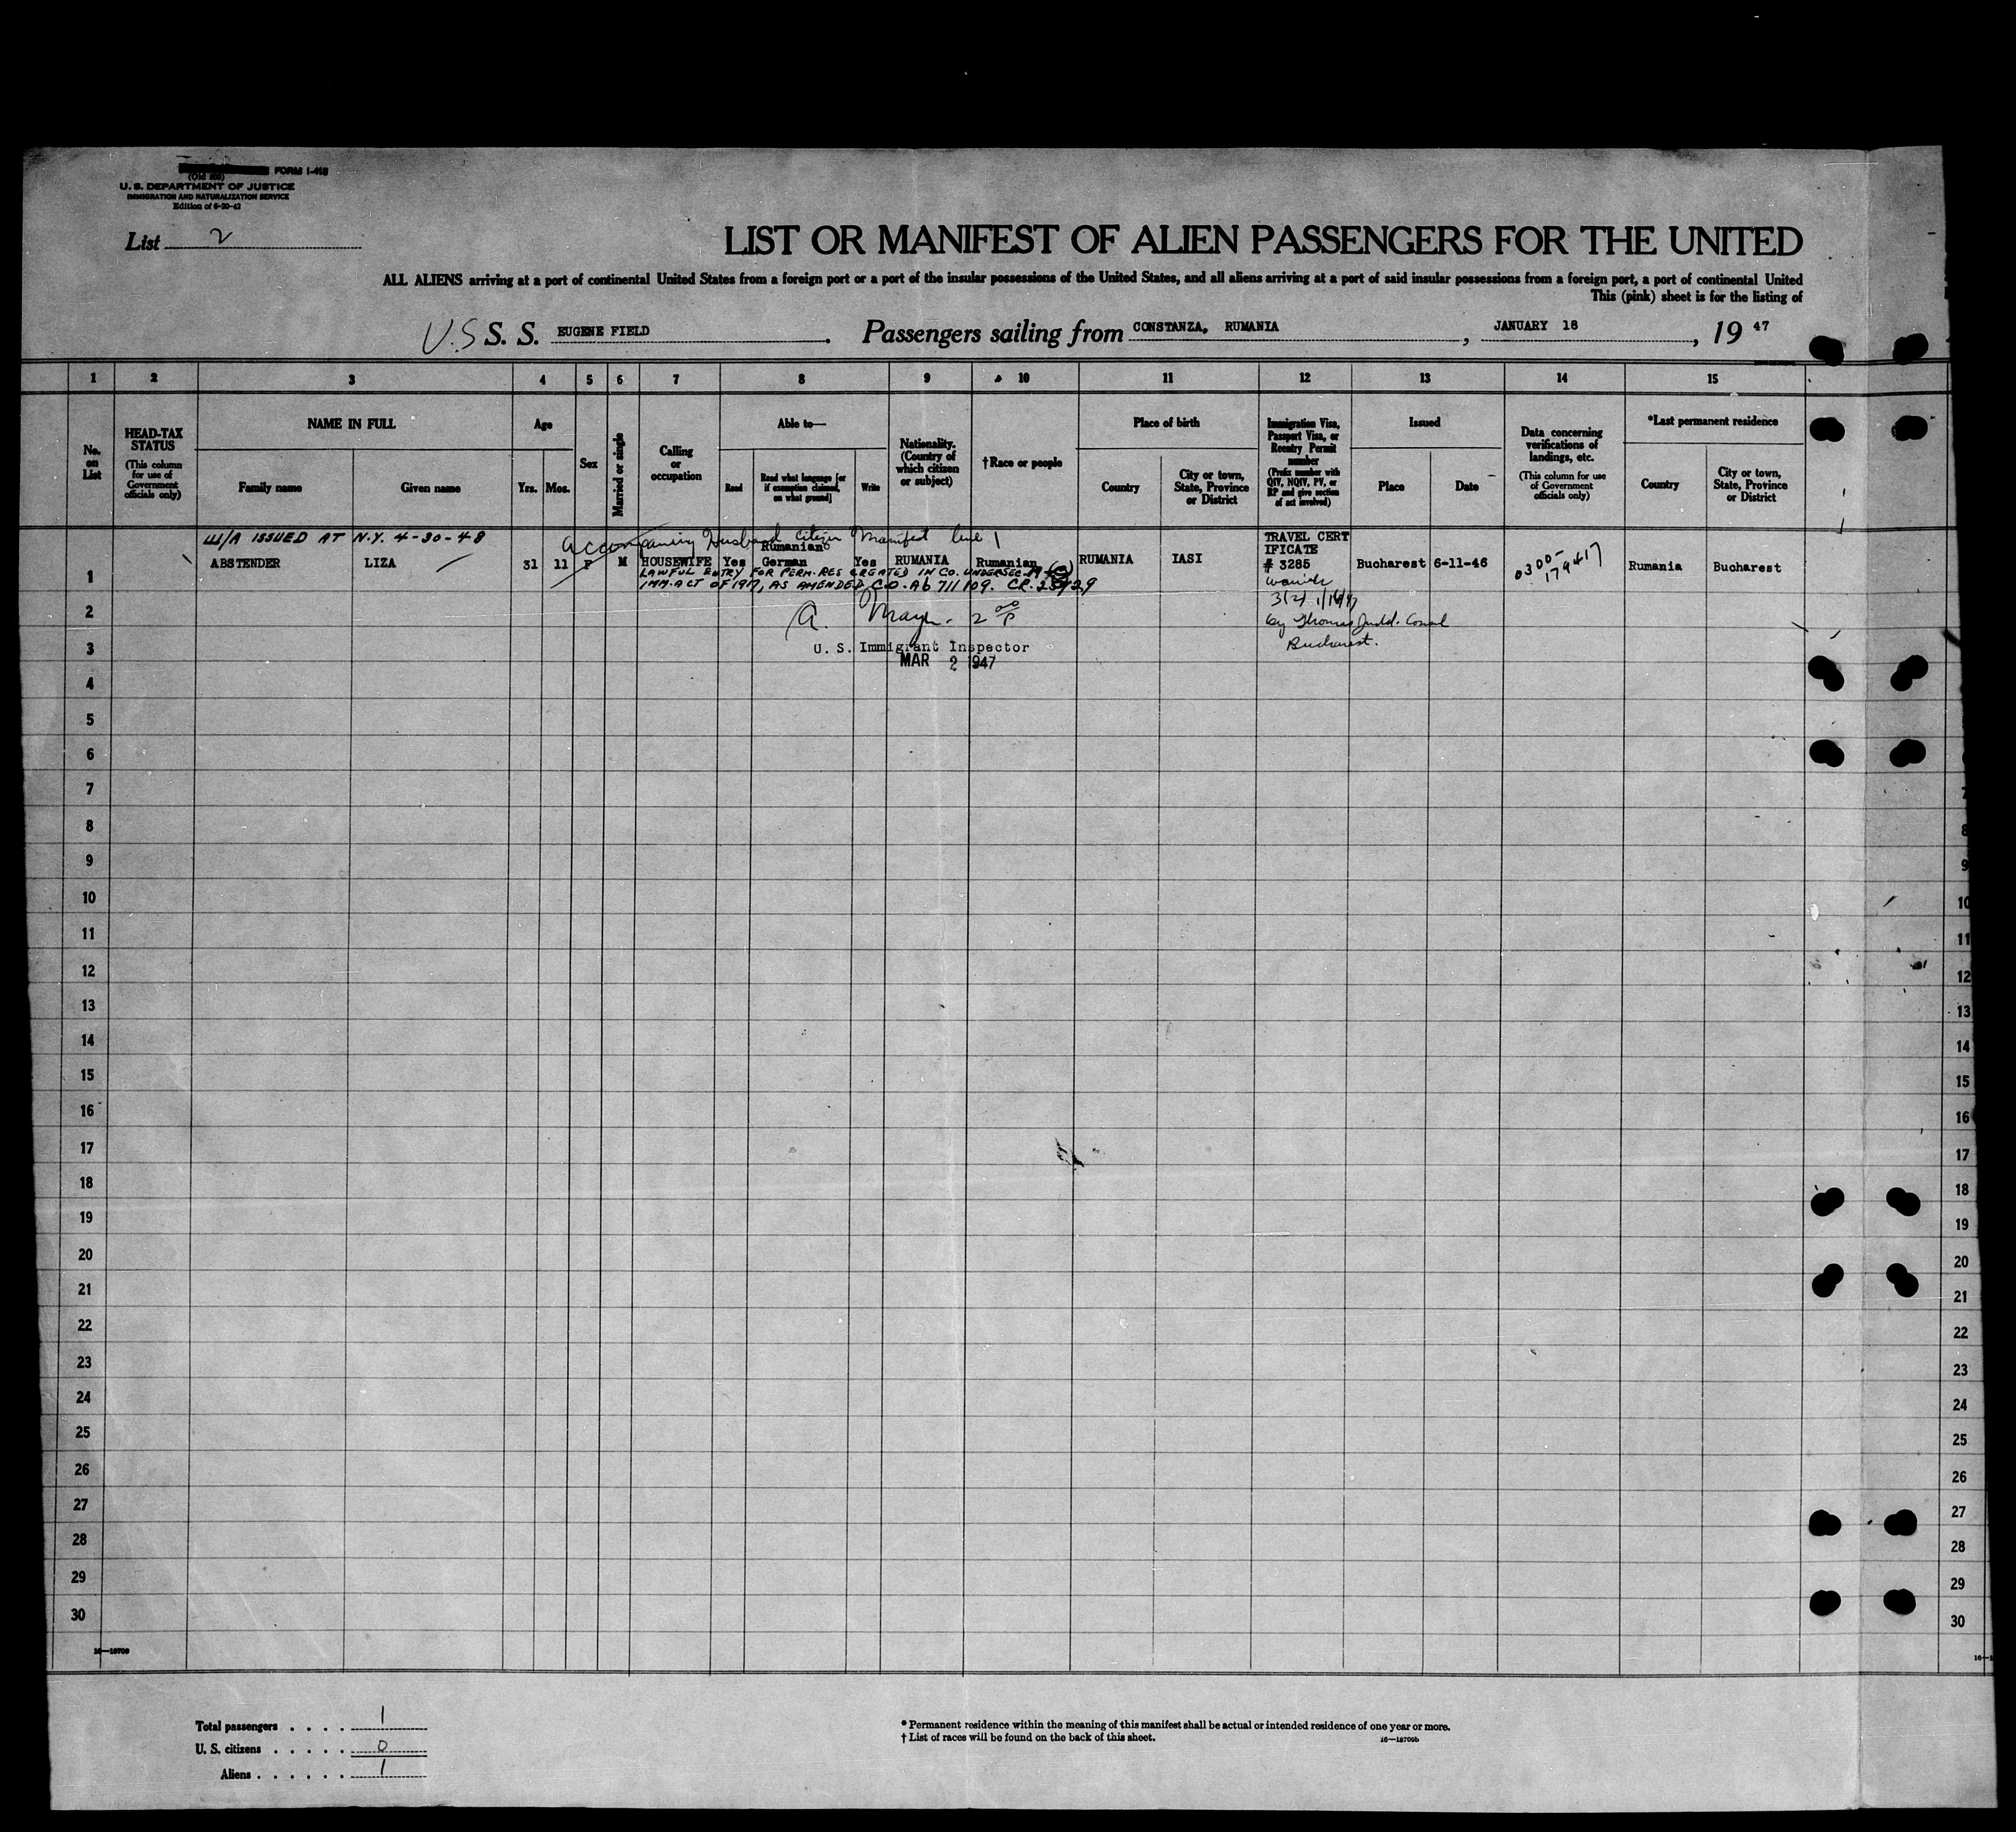 FORM I-418
(Old 500)
U. S. DEPARTMENT OF JUSTICE
IMMIGRATION AND NATURALIZATION SERVICE
Edition of 6-20-42
List 2
LIST OR MANIFEST OF ALIEN PASSENGERS FOR THE UNITED
ALL ALIENS arriving at a port of continental United States from a foreign port or a port of the insular possessions of the United States, and all aliens arriving at a port of said insular possessions from a foreign port, a port of continental United
This (pink) sheet is for the listing of
U.S S. S. EUGENE FIELD. Passengers sailing from CONSTANZA, RUMANIA, JANUARY 18, 19 47
1 2 3 4 5 6 7 8 9 10 11 12 13 14 15
No. on List
HEAD-TAX STATUS (This column for use of Government officials only)
NAME IN FULL
Family name Given name
Age
Yrs. Mos.
Sex
Married or single
Calling or occupation
Able to—
Read Read what language [or if exemption claimed, on what ground] Write
Nationality. (Country of which citizen or subject)
†Race or people
Place of birth
Country City or town, State, Province or District
Immigration Visa, Passport Visa, or Reentry Permit number (Prefix number with QIV, NQIV, PV, or RP and give section of act involved)
Issued
Place Date
Data concerning verifications of landings, etc. (This column for use of Government officials only)
*Last permanent residence
Country City or town, State, Province or District
W/A ISSUED AT N.Y. 4-30-48
Accompaning Husband Citizen Manifest line 1
1 ABSTENDER LIZA 31 11 F M HOUSEWIFE Yes Rumanian German Yes RUMANIA Rumanian RUMANIA IASI TRAVEL CERT IFICATE # 3285 Bucharest 6-11-46 0300-179417 Rumania Bucharest
LAWFUL ENTRY FOR PERM. RES CREATED IN CO. UNDER SEC.
IMM. ACT OF 1917, AS AMENDED C.O. A6 711 109. CR. 25729
3(2) 1/16/47
by Thomas Judd. Consul
Bucharest.
A. 2 00 P
U. S. Immigrant Inspector
MAR 2 1947
2
3
4
5
6
7
8
9
10
11
12
13
14
15
16
17
18
19
20
21
22
23
24
25
26
27
28
29
30
16—18709
7
8
9
10
11
12
13
14
15
16
17
18
19
20
21
22
23
24
25
26
27
28
29
30
Total passengers . . . . 1
U. S. citizens . . . . . 0
Aliens . . . . . . 1
* Permanent residence within the meaning of this manifest shall be actual or intended residence of one year or more.
† List of races will be found on the back of this sheet.
16—18709b